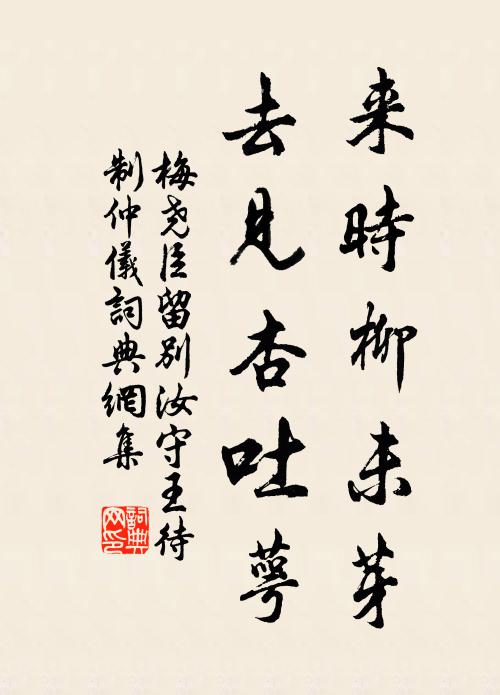 来時柳未芽
去見杏吐萼
梅尧臣留別汝守王待
制仲儀詞典網集
詞典
网印